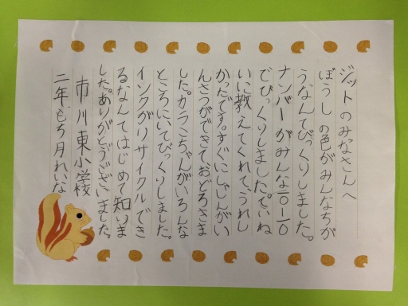 ジットのみなさんへ
ぼうしの色がみんなちが
うなんてびっくりしました。
ナンバーがみんな20-10
でびっくりしました。ていね
いに教えてくれて、うれし
かったです。すぐにしゃしんがい
んさつができておどろきま
した。カラこちゃんがいろんな
ところにいてびっくりしました。
インクがリサイクルでき
るなんてはじめて知りま
した。ありがとうございました。
市川東小学校
二年もち月れいな